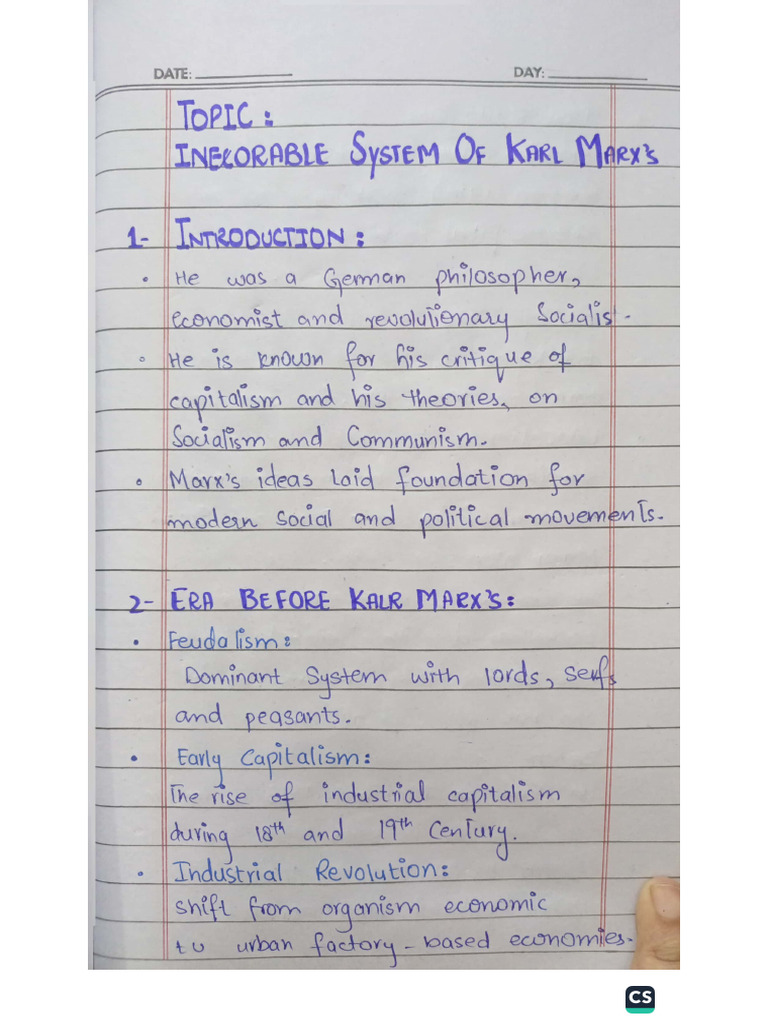 DATE: DAY:
TOPIC:
INEXORABLE SYSTEM OF KARL MARX'S
1- INTRODUCTION:
• He was a German philosopher,
economist and revolutionary Socialis.
• He is known for his critique of
capitalism and his theories, on
Socialism and Communism.
• Marx's ideas laid foundation for
modern social and political movements.
2- ERA BEFORE KALR MARX'S:
• Feudalism:
Dominant System with lords, serfs
and peasants.
• Early Capitalism:
The rise of industrial capitalism
during 18th and 19th Century.
• Industrial Revolution:
shift from organism economic
to urban factory-based economies.
CS